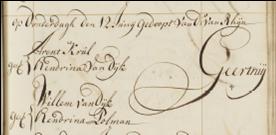 op Donderdagh den 12 Juny Gedoopt van Ds van Rhijn
Arent Krul
get Hendrina van Dyk
Geertruy
Willem van Dyk
get Hendrina Posman